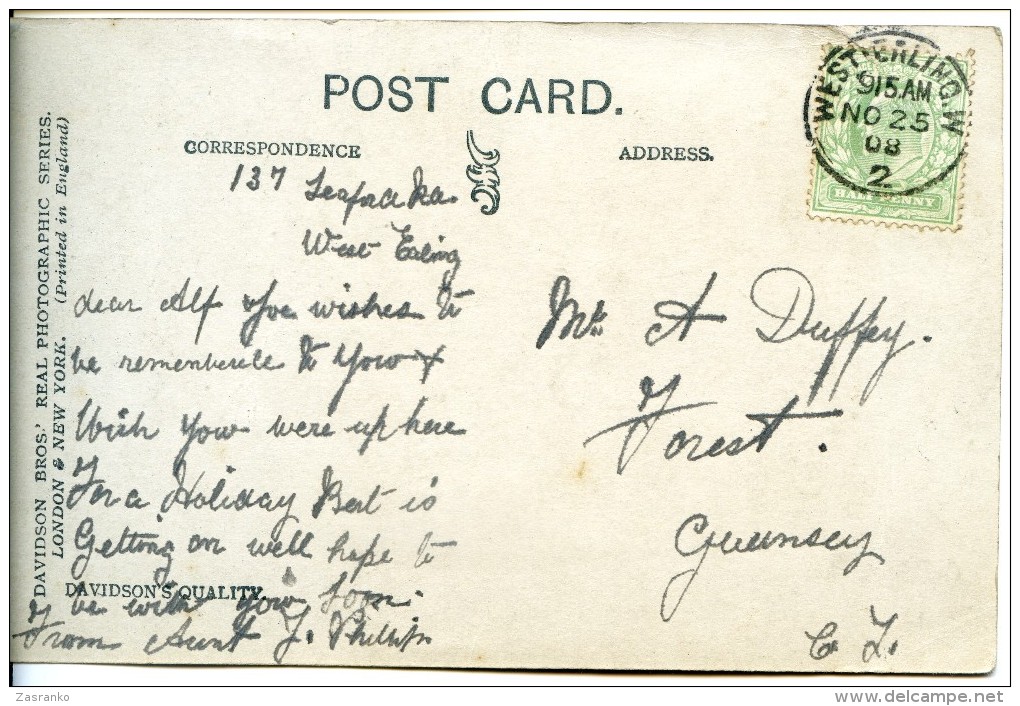 POST CARD.
CORRESPONDENCE
ADDRESS.
WEST EALING.W
915.AM
NO 25
08
2
HALF PENNY
DAVIDSON BROS.' REAL PHOTOGRAPHIC SERIES.
LONDON & NEW YORK. (Printed in England)
137
West Ealing
dear Alf Joe wishes to
be rememberde to Yow +
Wish Yow were up here
For a Holiday Bert is
Getting on well hope to
be with Yow Soon.
From Aunt J. Phillips
DAVIDSON'S QUALITY.
Mr A Duffey.
Forest.
Guernsey
C I.
Zasranko
delcampe.net